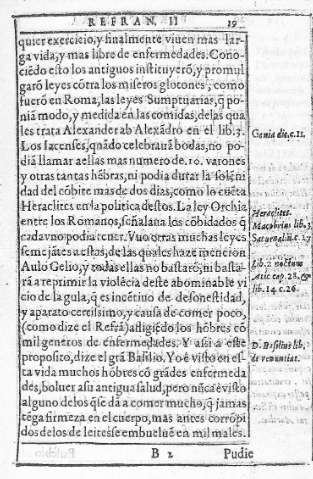 REFRAN. II 19
quier exercicio, y finalmente viuen mas lar-
ga vida, y mas libre de enfermedades. Cono-
ciẽdo esto los antiguos instituyerõ, y promul
garõ leyes cõtra los miseros glotones, como
fuerõ en Roma, las leyes Sumptuarias, q̃ po-
niã modo, y medida en las comidas, delas qua
les trata Alexander ab Alexãdro en el lib. 3.
Los Iacenses, quãdo celebrauã bodas, no po-
diã llamar aellas mas numero de. 10. varones
y otras tantas hẽbras, ni podia durar la solẽni
dad del cõbite mas de dos dias, como lo cuẽta
Heraclites en la politica destos. La ley Orchia
entre los Romanos, señalaua los cõbidados q̃
cada vno podia tener. Vuo otras muchas leyes
semejãtes a estas, de las quales haze mencion
Aulo Gelio, y todas ellas no bastarõ, ni basta-
rã a reprimir la violẽcia deste abominable vi
cio de la gula, q̃ es incẽtiuo de desonestidad,
y aparato certissimo, y causa de comer poco,
(como dize el Refrã) afligiẽdo los hõbres cõ
mil generos de enfermedades. Y asi a este
proposito, dize el grã Basilio. Yo è visto en es-
ta vida muchos hõbres cõ grãdes enfermeda
des, boluer a su antigua salud, pero nũca è visto
alguno delos q̃ se dã a comer mucho, q̃ jamas
tẽga firmeza en el cuerpo, mas antes corrõpi
dos delos deleites se embueluẽ en mil males.
Genia. die. c. 11.
Heraclites.
Macobrius lib. 3
Saturnaliũ. c. 17
Lib. 2 noctium
Atic. cap. 28. &
lib. 14 c. 26.
D. Basilius lib.
de renuntiat.
B 2 Pudie